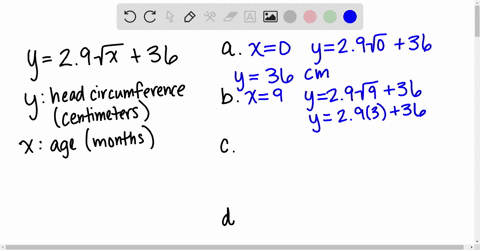 y = 2.9√x + 36
y: head circumference
(centimeters)
x: age (months)
a. x=0 y=2.9√0 +36
y = 36 cm
b. x=9 y=2.9√9 +36
y= 2.9(3)+36
c.
d